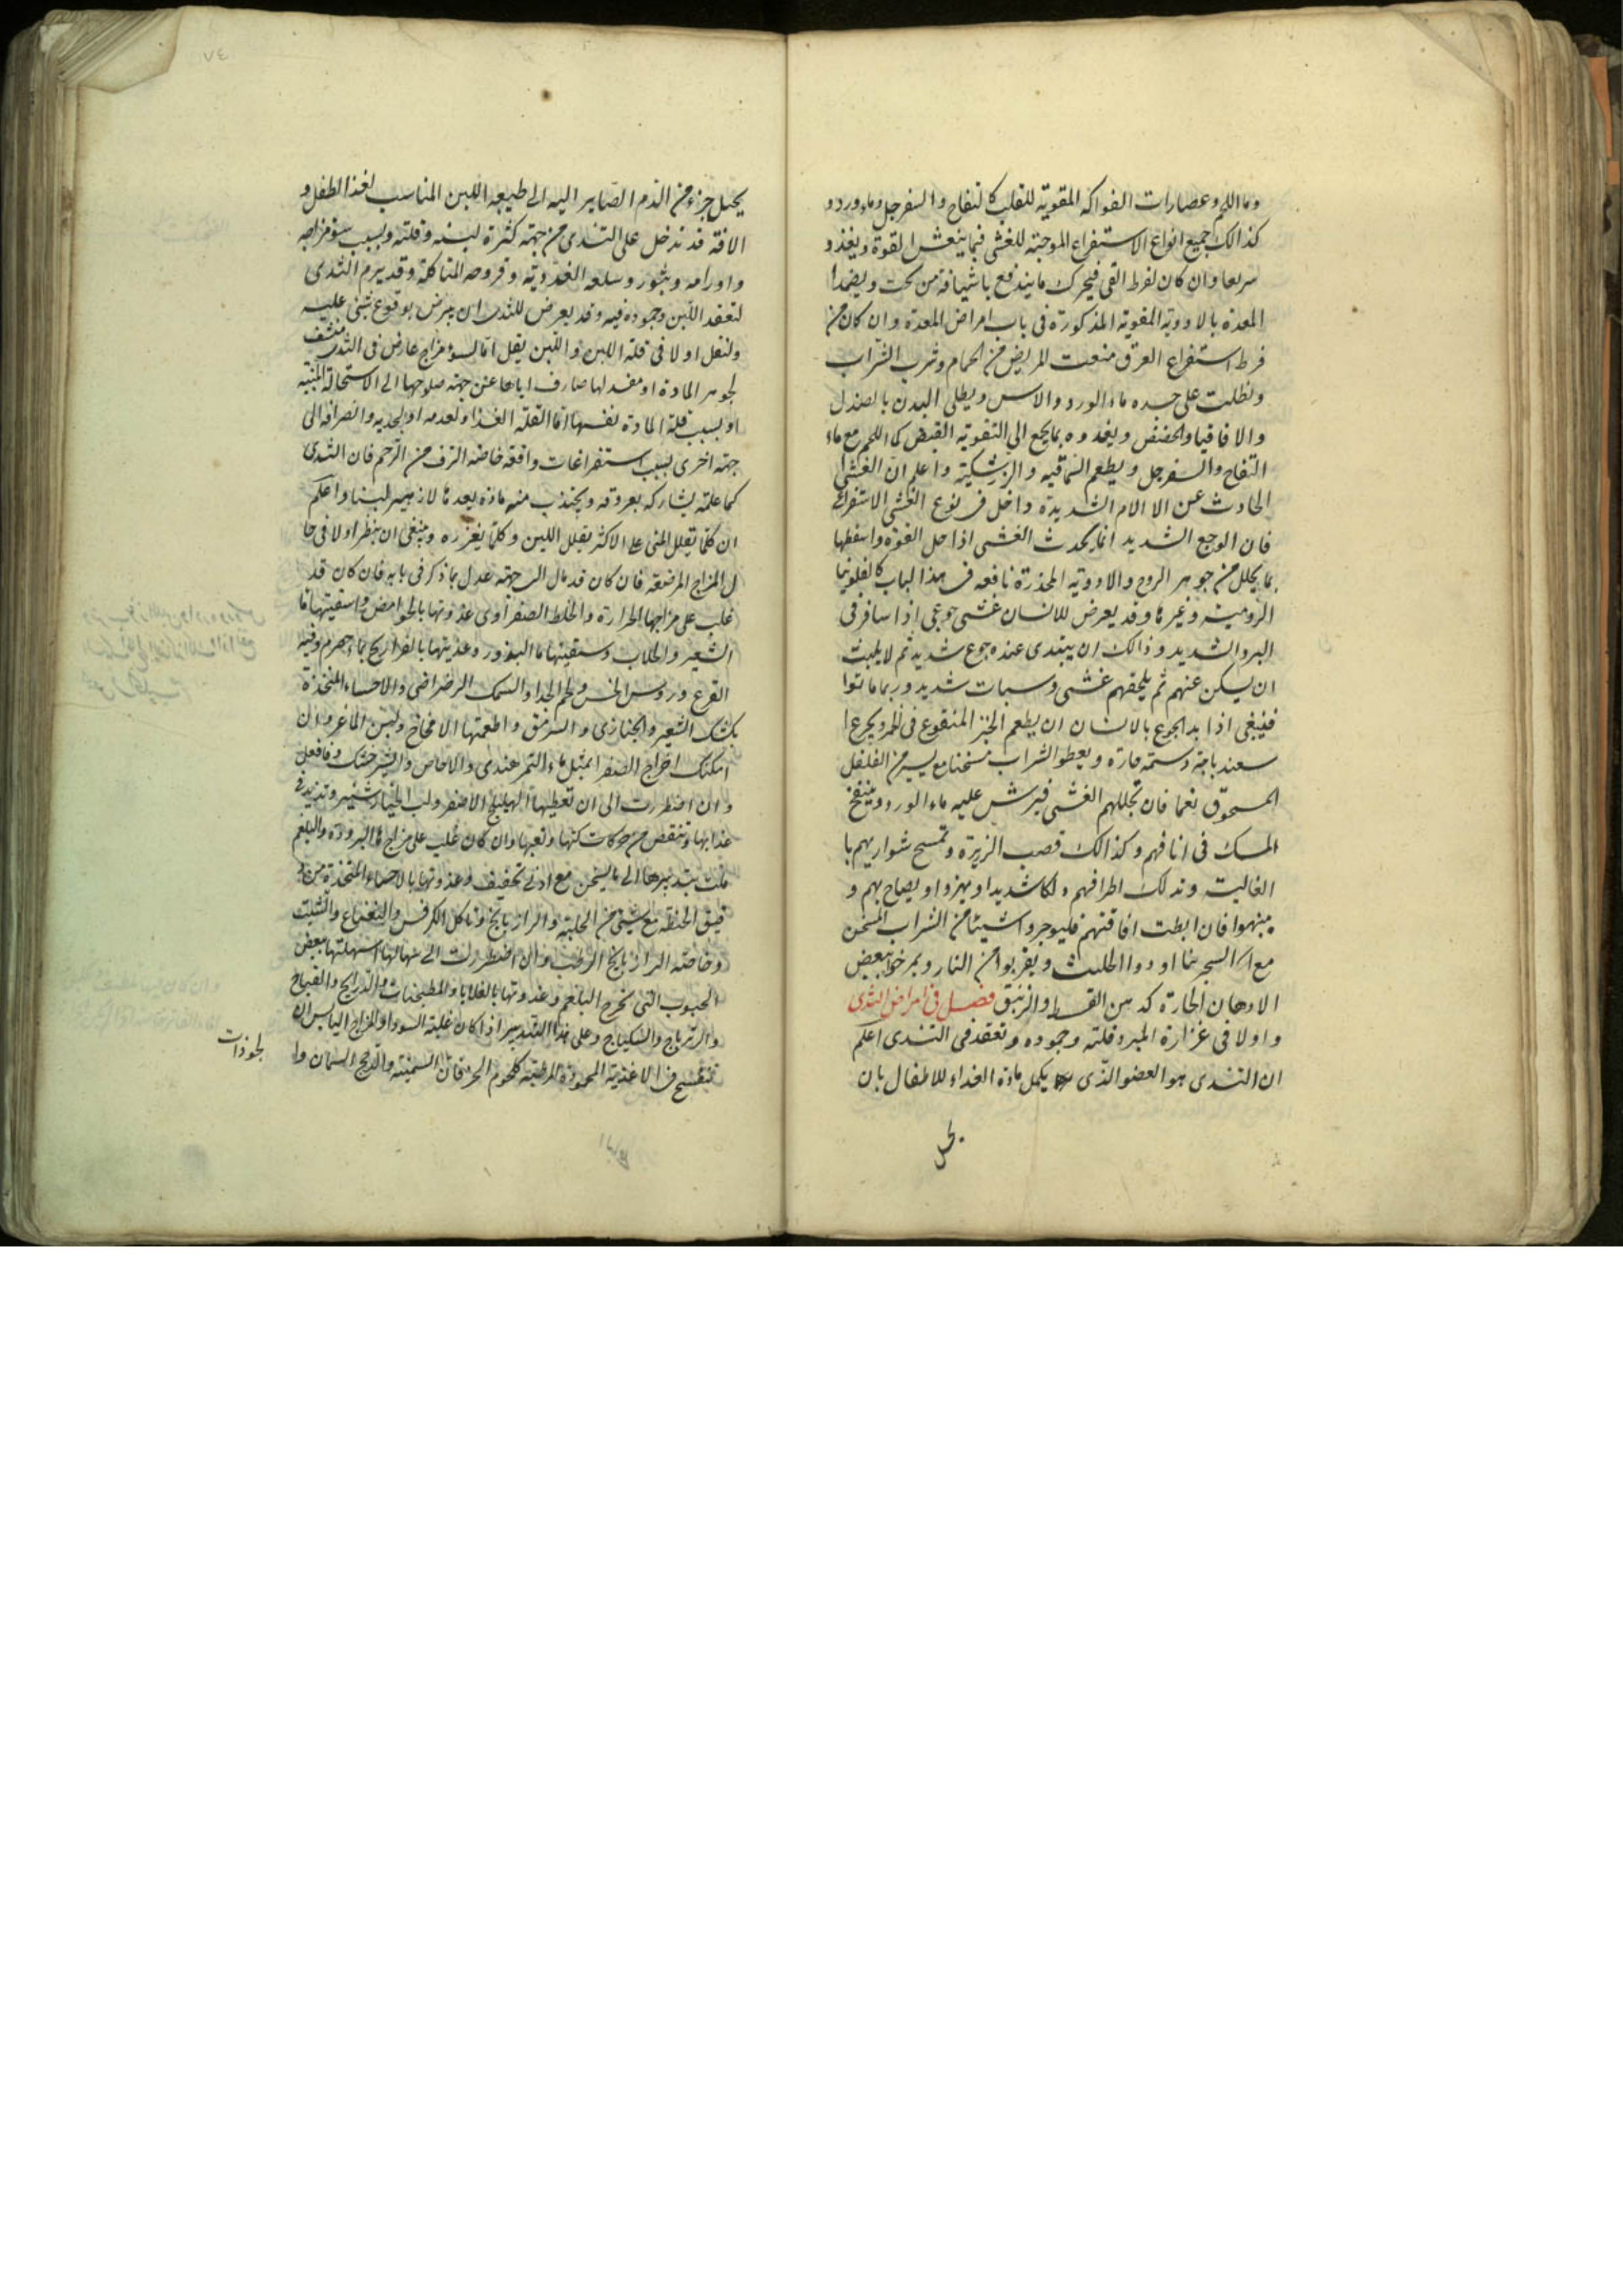 وما اللحم وعصارات الفواكه المقوية للقلب كالتفاح والسفرجل وماء ورد و
كذالك جميع انواع الاستفراغ الموجبة للغشى فبما ينعش القوة ويغذو
سريعا وان كان لفرط القى فيحرك ما يندفع باشيافة من تحت ويضمد ا
المعدة بالادوية المقوية المذكورة فى باب امراض المعدة وان كان من
فرط استفراغ العرق منعت المريض من الحمام وشرب الشراب
ونطلت على جسده ماء الورد والاس ويطلى البدن بالصندل
والاقاقيا والحضض ويغذوه بما يجمع الى التقوية القبض كما اللحم مع ماء
التفاح والسفرجل ويطعم السماقيه والزرشكية واعلم ان الغشى ا
الحادث عن الالام الشديدة داخل فى نوع الغشى الاستفراغ
فان الوجع الشديد انما يحدث الغشى اذا حل القوة واسقطها
بما يحلل من جوهر الروح والادوية المخدرة نافعه فى هذا الباب كالفلونيا
الرومية وغيرها وقد يعرض للانسان غشى جوعى اذا سافر فى
البرد الشديد وذالك ان يبتدى عنده جوع شديد ثم لا يلبث
ان يسكن عنهم ثم يلحقهم غشى وسبات شديد وربما ماتوا
فينبغى اذا بدا الجوع بالانسان ان يطعم الخبز المنقوع فى الخمر ويجرع ا
سعند باجة دسمة حارة ويعطو الشراب مسخنا مع يسير من الفلفل
المسحوق نعما فان تجللهم الغشى فيرش عليه ماء الورد وينفخ
المسك فى انافهم وكذالك قصب الزريرة وتمسح شواربهم با
الغالية وتدلك اطرافهم دلكا شديدا ويهزوا ويصاح بهم و
ينبهوا فان ابطت افاقتهم فليوجروا شيئا من الشراب المسخن
مع السجرينا او دوا الحلتيت ويقربوا من النار ويمرخوا ببعض
الادهان الحارة كدهن القسط والزنبق فصل فى امراض الثدى
واولا فى غزارة اللبن وقلته وجموده وتعقد فى الثدى اعلم
ان الثدى هو العضو الذى يكمل مادة الغذاء للاطفال بان
يحيل
يحيل جزء من الدم الصاير اليه الى طبيعه اللبن المناسب لغذا الطفل و
الافة قد تدخل على الثدى من جهة كثرة لبنه وقلته وبسبب سوء مزاجه
واورامه وبثور وسلعه الغددية وقروحه المتاكلة وقد يرم الثدى
لتعقد اللبن وجموده فيه وقد يعرض للثدى ان يرض بوقوع شى عليه
ولنقل اولا فى قلة اللبن واللبن يقل اما لسوء مزاج عارض فى الثدى منشف
لجوهر المادة او مفسد لها صارف اياها عن جهة صلوحها الى الاستحالة اللبنية
او بسبب قلة المادة نفسها اما لقلة الغذا ولعدمه او لجذبه وانصرافه الى
جهة اخرى بسبب استفراغات واقعة خاصه النزف من الرحم فان الثدى
كما علمته يشاركه بعروقه ويجتذب منه مادة يعدها لان يصير لبنا واعلم
ان كلما تقلل المنى على الاكثر يقلل اللبن وكلما يغزره وينبغى ان ينظر اولا فى حا
ل المزاج المرضعة فان كان قد مال الى جهة عدل بما ذكر فى بابه فان كان قد
غلب على مزاجها الحرارة والخلط الصفراوى غذوتها بالحوامض واسقيتها ما
الشعير والجلاب وسقيتها ما البذور وغذيتها بالفراريج بماء حصرم وفيه
القرع وروس الخس ولحم الجدا والسمك الرضراضى والاحساء المتخذة
بكشك الشعير والخبازى والسرمق واطعمتها الامخاخ ولبن الماعز وان
امكنك اخراج الصفرا بمثل ماء التمر هندى والاجاص والشيرخشك فافعل
وان اضطررت الى ان تعطيها الهليلج الاصفر ولب الخيار شنبر وتزيد فى
غذايها وتنقص من حركاتها وتعبها وان كان غلب على مزاجها البرودة والبلغم
ملت بتدبيرها الى ما يسخن مع ادنى تجفيف وغذوتها بالاحساء المتخذة من د
قيق الحنطة مع شى من الحلبة والرازيانج وتاكل الكرفس والنعناع والشبت
وخاصة الرازيانج الرطب وان اضطررت الى اسهالها اسهلتها ببعض
الحبوب التى تخرج البلغم وغذوتها بالقلايا والمطجنات والدراج والقباج
والزيرباج والسكباج وعلى هذا التدبير اذا كان غلبة السودا والمزاج اليابس ان
تنفسح فى الاغذية المحمودة المرطبة كلحوم الخرفان السمينة والدجج السمان وا
لجوذابات